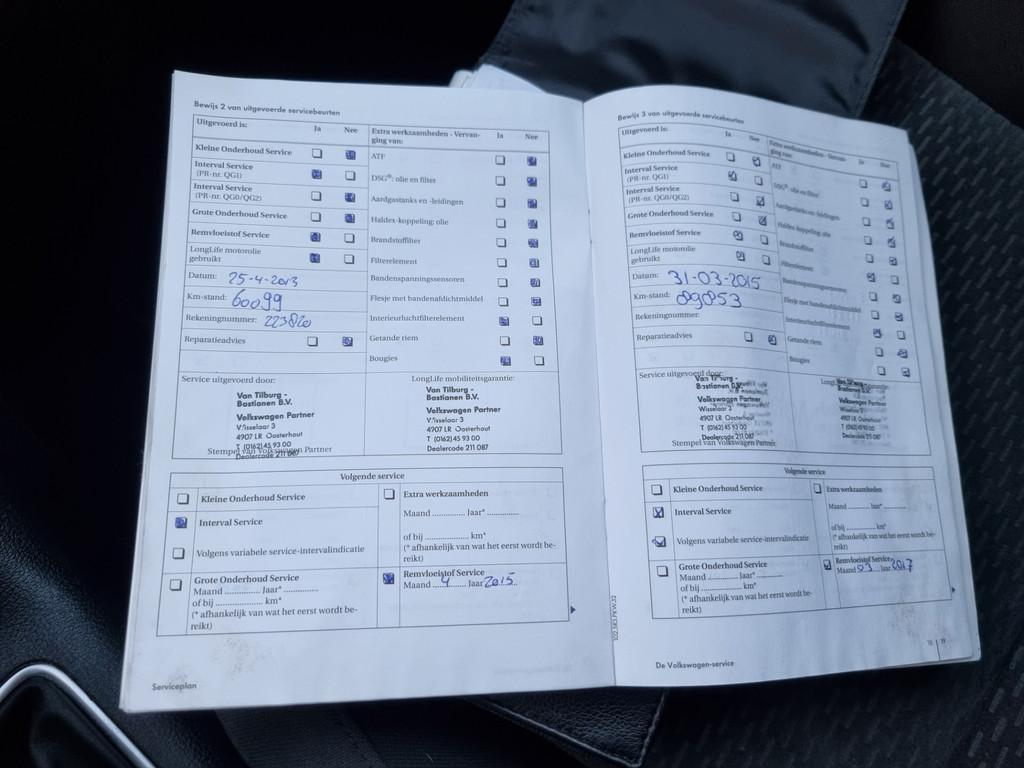 Bewijs 2 van uitgevoerde servicebeurten
Uitgevoerd is: Ja Nee
Kleine Onderhoud Service
Interval Service
(PR-nr. QG1)
Interval Service
(PR-nr. QG0/QG2)
Grote Onderhoud Service
Remvloeistof Service
LongLife motorolie
gebruikt
Datum: 25-4-2013
Km-stand: 60099
Rekeningnummer: 223820
Reparatieadvies
Extra werkzaamheden - Vervan-
ging van: Ja Nee
ATF
DSG®: olie en filter
Aardgastanks en -leidingen
Haldex-koppeling: olie
Brandstoffilter
Filterelement
Bandenspanningssensoren
Flesje met bandenafdichtmiddel
Interieurluchtfilterelement
Getande riem
Bougies
Service uitgevoerd door:
Van Tilburg -
Bastianen B.V.
Volkswagen Partner
Wisselaar 3
4907 LR Oosterhout
T (0162) 45 93 00
Dealercode 211 087
Stempel van Volkswagen Partner
LongLife mobiliteitsgarantie:
Van Tilburg -
Bastianen B.V.
Volkswagen Partner
Wisselaar 3
4907 LR Oosterhout
T (0162) 45 93 00
Dealercode 211 087
Volgende service
Kleine Onderhoud Service
Interval Service
Volgens variabele service-intervalindicatie
Grote Onderhoud Service
Maand .............. Jaar* ..............
of bij ................... km*
(* afhankelijk van wat het eerst wordt be-
reikt)
Extra werkzaamheden
Maand .............. Jaar* ..............
of bij ................... km*
(* afhankelijk van wat het eerst wordt be-
reikt)
Remvloeistof Service
Maand 4 Jaar 2015
Serviceplan
Bewijs 3 van uitgevoerde servicebeurten
Uitgevoerd is: Ja Nee
Kleine Onderhoud Service
Interval Service
(PR-nr. QG1)
Interval Service
(PR-nr. QG0/QG2)
Grote Onderhoud Service
Remvloeistof Service
LongLife motorolie
gebruikt
Datum: 31-03-2015
Km-stand: 89853
Rekeningnummer:
Reparatieadvies
Extra werkzaamheden - Vervan-
ging van: Ja Nee
ATF
DSG®: olie en filter
Aardgastanks en -leidingen
Haldex-koppeling: olie
Brandstoffilter
Filterelement
Bandenspanningssensoren
Flesje met bandenafdichtmiddel
Interieurluchtfilterelement
Getande riem
Bougies
Service uitgevoerd door:
Van Tilburg -
Bastianen B.V.
Volkswagen Partner
Wisselaar 3
4907 LR Oosterhout
T (0162) 45 93 00
Dealercode 211 087
Stempel van Volkswagen Partner
Van Tilburg -
Bastianen B.V.
Volkswagen Partner
Wisselaar 3
4907 LR Oosterhout
T (0162) 45 93 00
Dealercode 211 087
Volgende service
Kleine Onderhoud Service
Interval Service
Volgens variabele service-intervalindicatie
Grote Onderhoud Service
Maand .............. Jaar* ..............
of bij ................... km*
(* afhankelijk van wat het eerst wordt be-
reikt)
Extra werkzaamheden
Maand ........... Jaar* ...........
of bij ................ km*
(* afhankelijk van wat het eerst wordt be-
reikt)
Remvloeistof Service
Maand 03 Jaar 2017
18 | 19
De Volkswagen-service